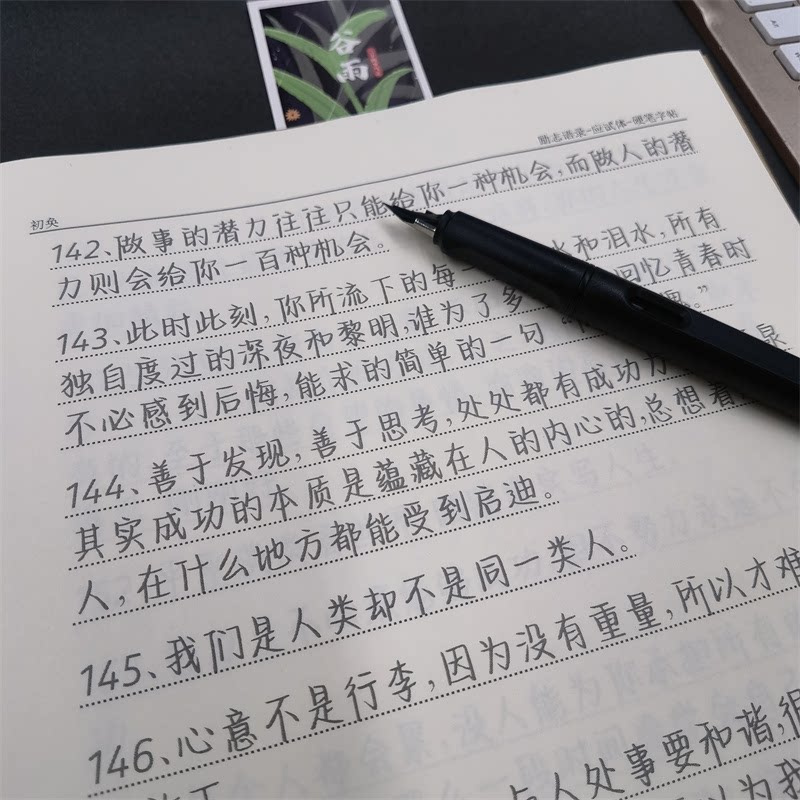 谷雨
励志语录-应试体-硬笔字帖
初奂
142、做事的潜力往往只能给你一种机会,而做人的潜
力则会给你一百种机会。
143、此时此刻,你所流下的每一 水和泪水,所有
独自度过的深夜和黎明,谁为了多 回忆青春时
不必感到后悔,能求的简单的一句“ 。”
144、善于发现,善于思考,处处都有成功 泉
其实成功的本质是蕴藏在人的内心的,总想着
人,在什么地方都能受到启迪。
145、我们是人类却不是同一类人。
146、心意不是行李,因为没有重量,所以才难
人处事要和谐,很
以为我